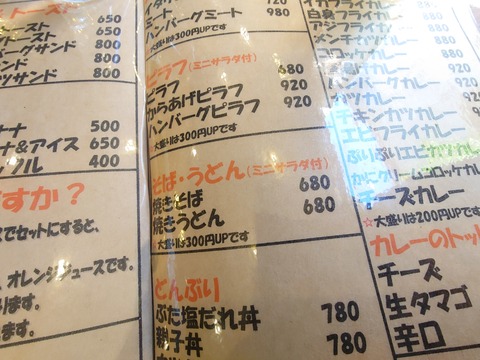 トースト
ースト 650
トースト 650
ーグサンド 800
サンド 800
ツサンド 800
ナナ 500
ナ&アイス 650
ップル 400
すか?
スでセットにすると、
、オレンジジュースです。
ります。
ます。
ミート
ハンバーグミート 980
大盛りは300円UPです
ピラフ(ミニサラダ付)
ピラフ 680
からあげピラフ 920
ハンバーグピラフ 920
大盛りは300円UPです
そば・うどん(ミニサラダ付)
焼きそば 680
焼きうどん 680
☆大盛りは300円UPです
どんぶり
ぶた塩だれ丼 780
親子丼 780
イカフライカレー
白身フライカレー
アジフライカレー
コロッケカレー
ハンバーグカレー 920
カツカレー 920
チキンカツカレー
エビフライカレー
ぷりぷりエビカツカレー
かにクリームコロッケカレー
チーズカレー
☆大盛りは200円UPです
カレーのトッ
チーズ
生タマゴ
辛口